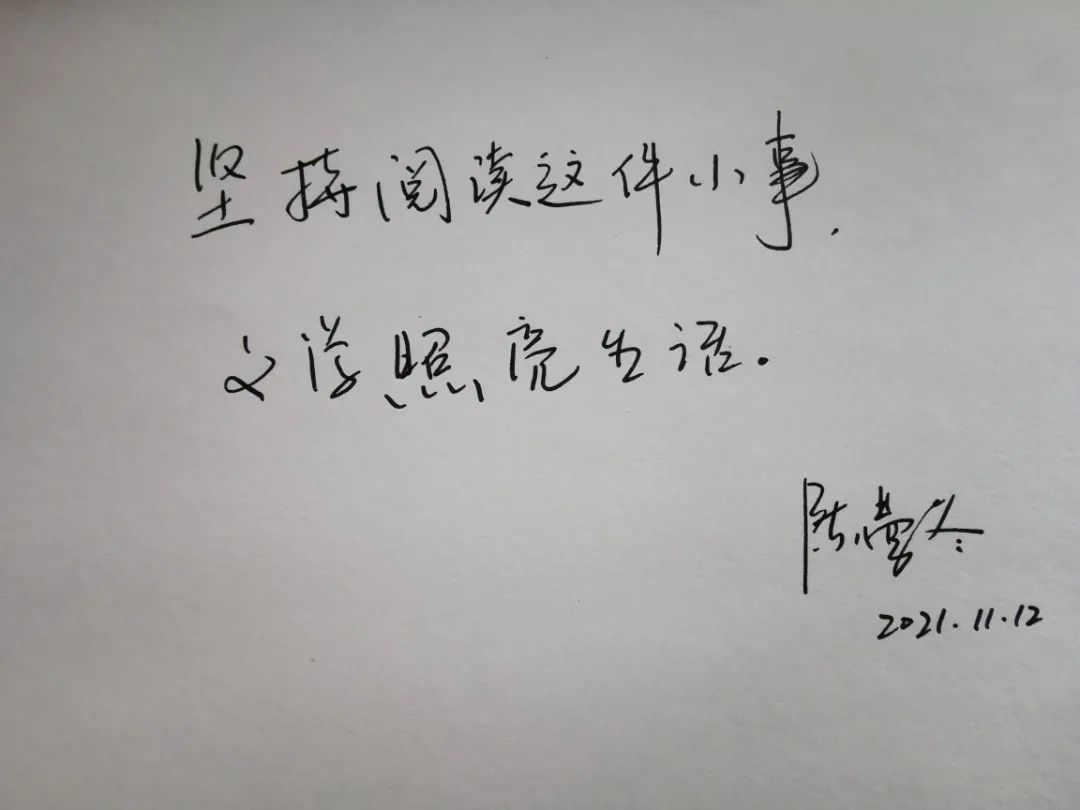 坚持阅读这件小事，
文学照亮生活.
陈
2021.11.12